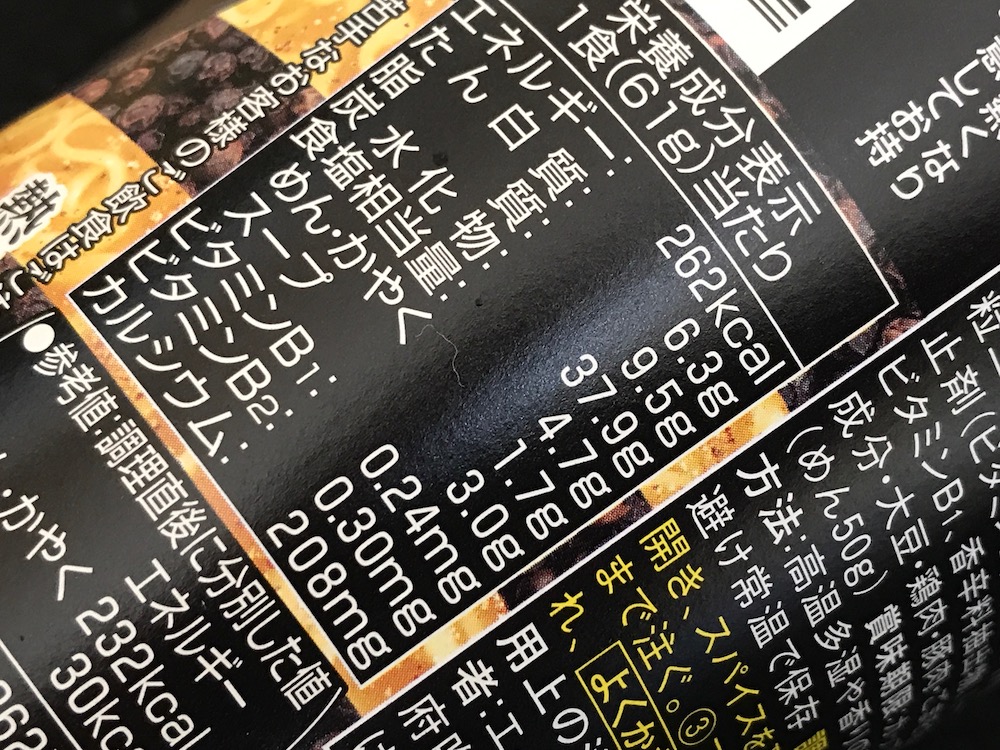 栄養成分表示
1食(61g)当たり
エネルギー: 262kcal
たん白質: 6.3g
脂質: 9.5g
炭水化物: 37.9g
食塩相当量: 4.7g
めん・かやく 1.7g
スープ 3.0g
ビタミンB1: 0.24mg
ビタミンB2: 0.30mg
カルシウム: 208mg
●参考値:調理直後に分別した値
エネルギー
・かやく 232kcal
30kc
262
苦手なお客様のご飲食はご
熱くなり
してお持
止剤(ビタ
ビタミンB1、香辛料抽出
成分・大豆・鶏肉・豚肉
(めん50g) 賞味期限
方法:高温多湿や香
避け常温で保存
開き、スパイスを
まで注ぐ。③
れ、よくか
用上の
者:エ
府吹